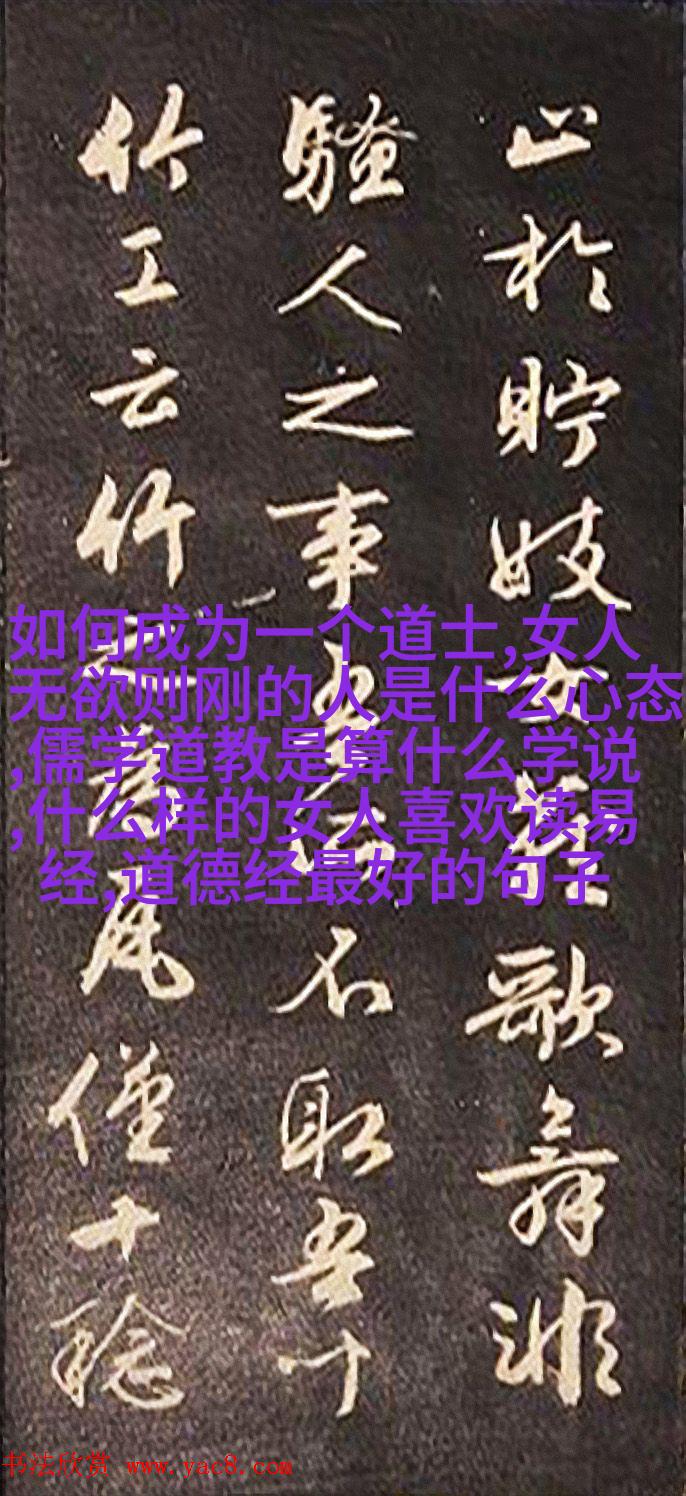 止於貯妓女藏歌舞非
騷人之事吾所不取吾
竹工云竹為瓦僅十稔
如何成为一个道士,女人
无欲则刚的人是什么心态
,儒学道教是算什么学说
,什么样的女人喜欢读易
经,道德经最好的句子
书法欣赏 www.yac8.com